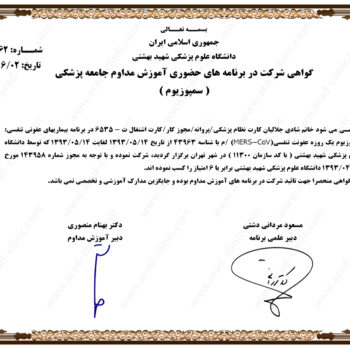 بسمه تعالی
جمهوری اسلامی ایران
دانشگاه علوم پزشکی شهید بهشتی
شماره: ۶۲
تاریخ: ۶/۰۲
گواهی شرکت در برنامه های حضوری آموزش مداوم جامعه پزشکی
( سمپوزیوم )
می شود خانم شادی جلالیان کارت نظام پزشکی/پروانه/مجوز کار/کارت اشتغال ت – ۶۵۳۵ در برنامه بیماریهای عفونی تنفسی:
یوم یک روزه عفونت تنفسی(MERS-CoV) /م با شناسه ۴۳۹۶۳ از تاریخ ۱۳۹۳/۰۵/۱۴ لغایت ۱۳۹۳/۰۵/۱۴ که توسط دانشگاه
پزشکی شهید بهشتی ( با کد سازمان ۱۱۳۰۰ ) در شهر تهران برگزار گردید، شرکت نموده و با توجه به مجوز شماره ۱۴۳۹۵۸ مورخ
۱۳۹۳/۰۴/ دانشگاه علوم پزشکی شهید بهشتی برابر با ۶ امتیاز را کسب نموده اند.
گواهی منحصرا جهت تائید شرکت در برنامه های آموزش مداوم بوده و جایگزین مدارک آموزشی و تخصصی نمی باشد.
مسعود مردانی دشتی
دبیر علمی برنامه
دکتر بهنام منصوری
دبیر آموزش مداوم